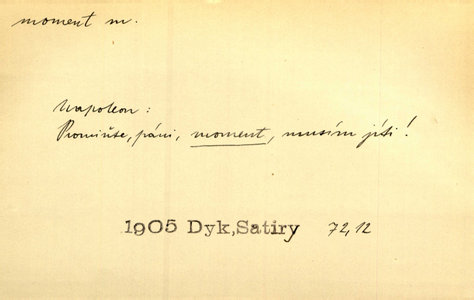 moment m.
Napoleon:
Promiňte, páni, moment, musím jíti!
1905 Dyk,Satiry 72,12